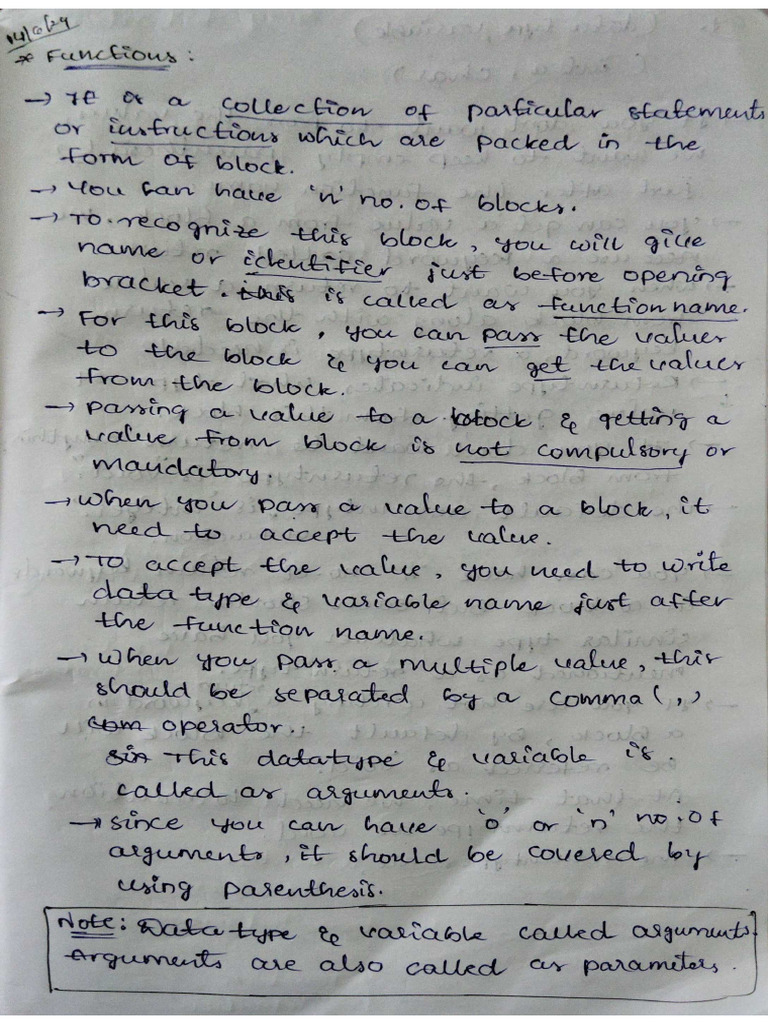 14/6/24
* Functions:
→ It is a collection of particular statements
or instructions which are packed in the
form of block.
→ You can have 'n' no. of blocks.
→ To recognize this block, you will give
name or identifier just before opening
bracket. this is called as function name.
→ For this block, you can pass the values
to the block & you can get the values
from the block.
→ passing a value to a block & getting a
value from block is not compulsory or
mandatory.
→ When you pass a value to a block, it
need to accept the value.
→ To accept the value, you need to write
data type & variable name just after
the function name.
→ When you pass a multiple value, this
should be separated by a comma (,)
com operator.
Sin This datatype & variable is
called as arguments.
→ Since you can have '0' or 'n' no. of
arguments, it should be covered by
using parenthesis.
Note: Data type & variable called arguments.
Arguments are also called as parameters.